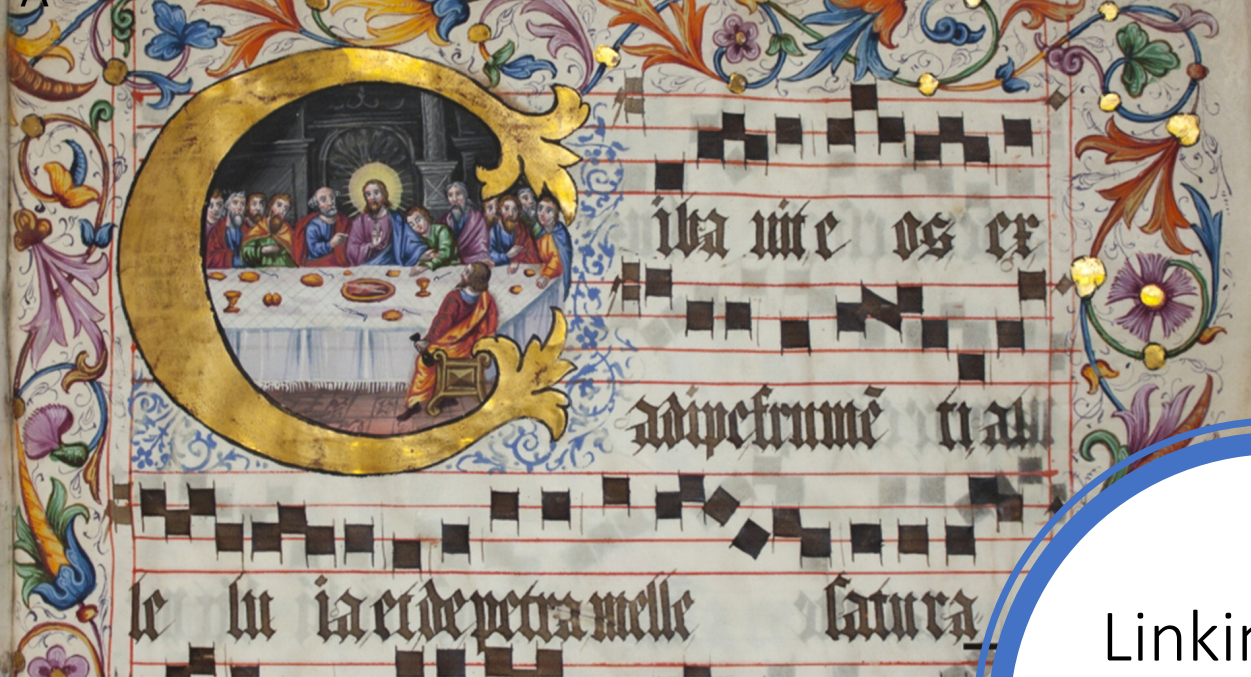 Ciba uit e os ex
adipe frumē ti all
le lu ia et de petra melle satura
Linkin